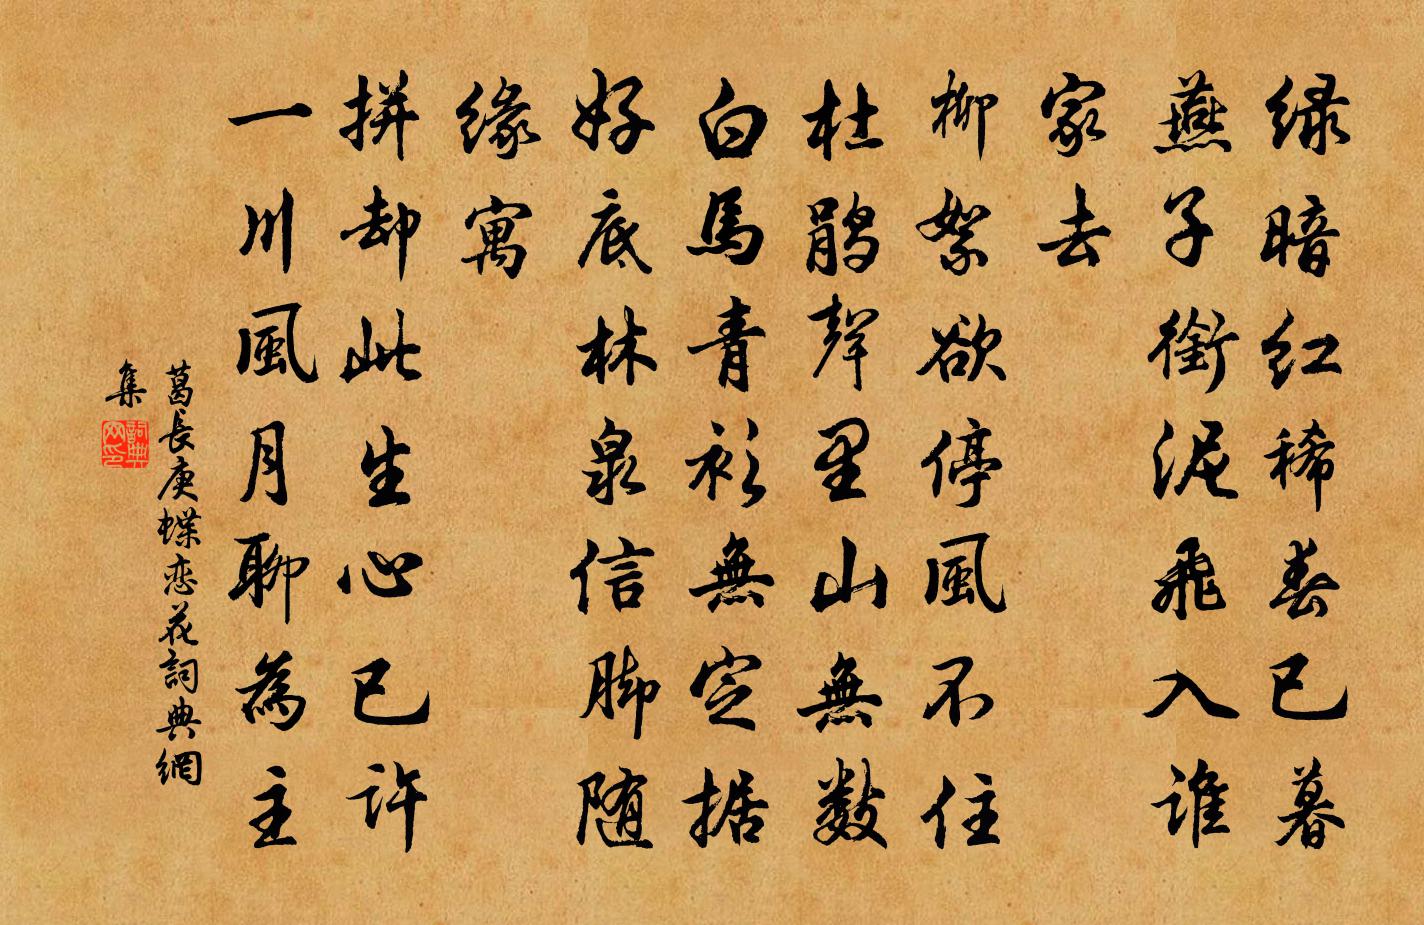 绿暗红稀春已暮
燕子衔泥飛入谁
家去
柳絮欲停風不住
杜鹃聲里山無数
白馬青衫無定据
好底林泉信脚随
缘寓
拼却此生心已许
一川風月聊為主
葛長庚蝶恋花詞典網
集
詞典
网印